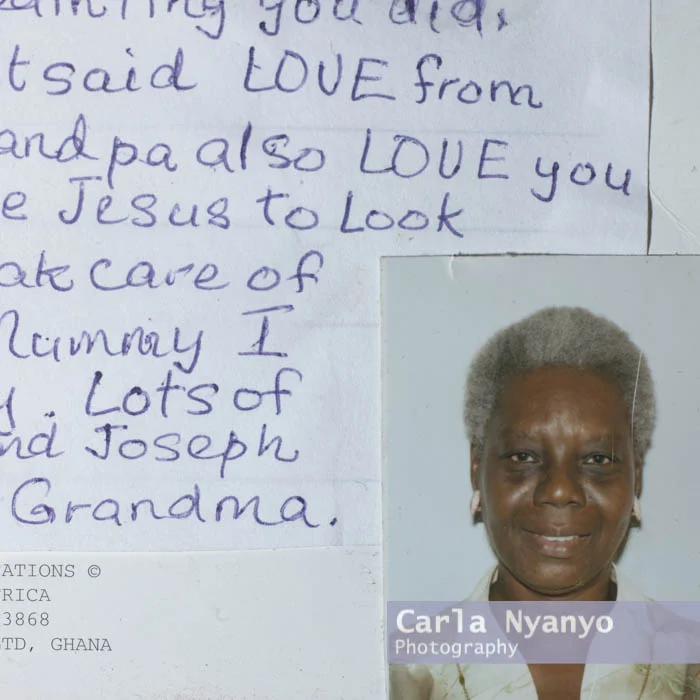 painting you did,
t said LOVE from
andpa also LOVE you
e Jesus to Look
ak care of
Mummy I
y. Lots of
nd Joseph
Grandma.
ATIONS ©
RICA
3868
TD, GHANA
Carla Nyanyo
Photography